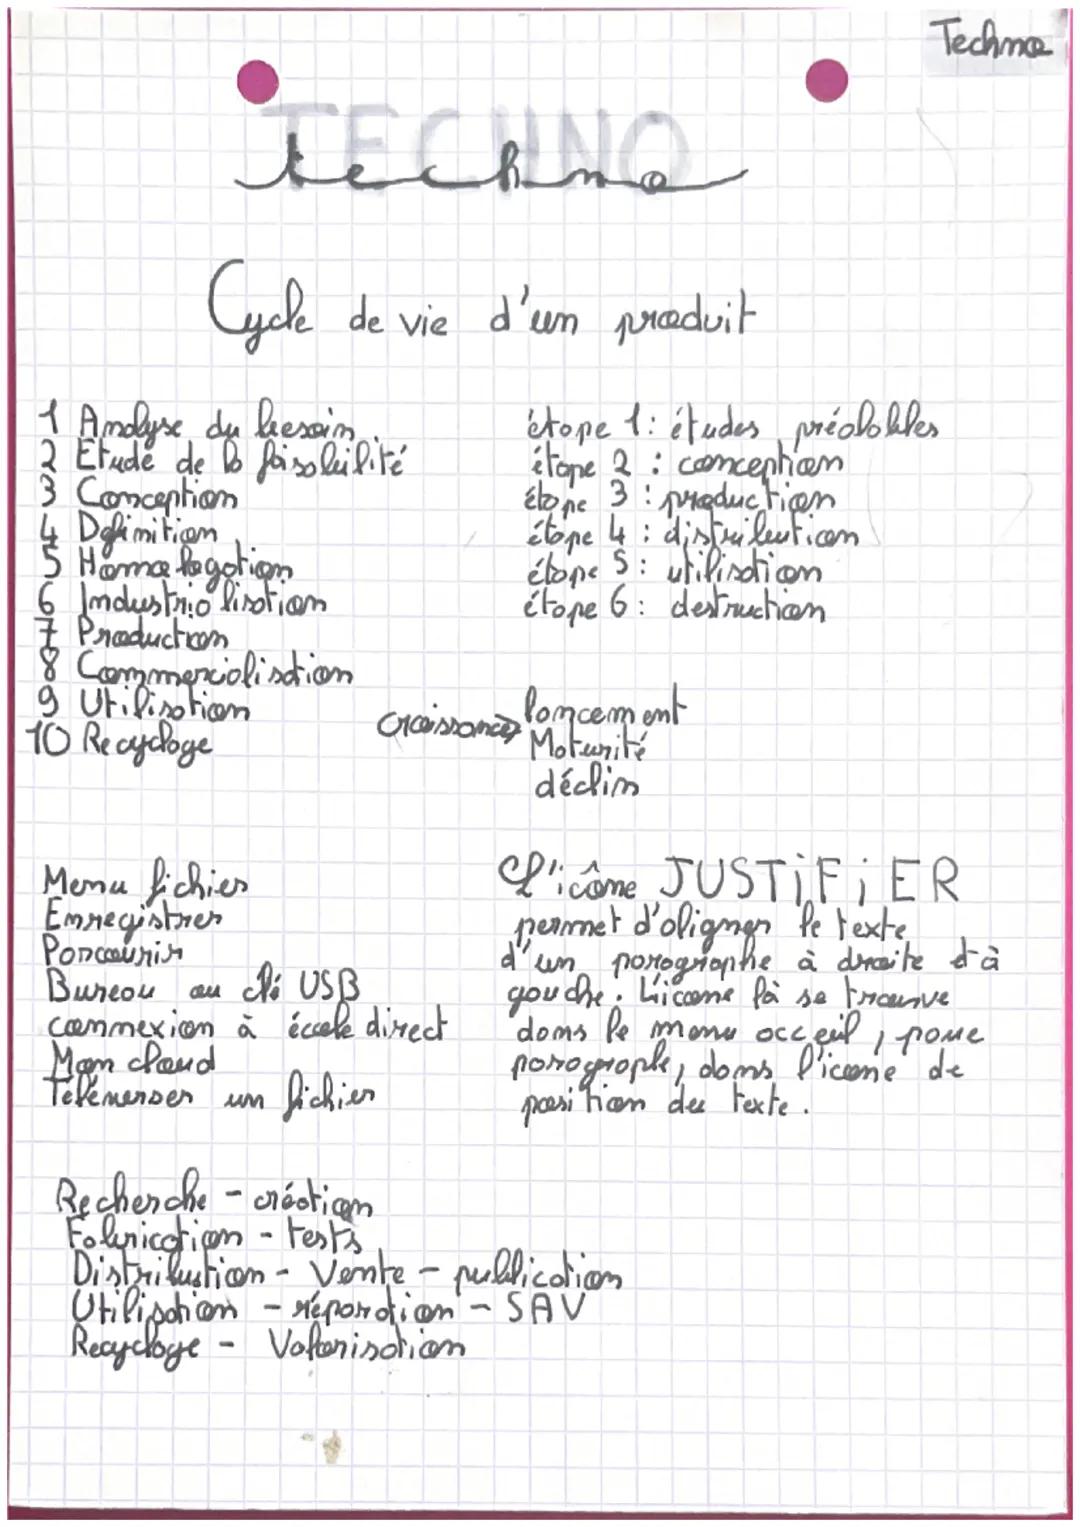 Techno
TECHNO
techno
Cycle de vie d'un produit
1 Analyse du besoin
2 Etude de la faisabilité
3 Conception
4 Définition
5 Homologation
6 Industrialisation
7 Production
8 Commercialisation
9 Utilisation
10 Recyclage
étape 1 : études préalables
étape 2 : conception
étape 3 : production
étape 4 : distribution
étape 5 : utilisation
étape 6 : destruction
croissance> lancement
Maturité
déclin
Menu fichier
Enregistrer
Parcourir
Bureau ou clé USB
connexion à école direct
Mon cloud
Téléverser un fichier
L'icône JUSTiFiER
permet d'aligner le texte
d'un paragraphe à droite et à
gauche. L'icone là se trouve
dans le menu acceuil, pour
paragraphe, dans l'icone de
position du texte.
Recherche - création
Fabrication - tests
Distribution - Vente - publication
Utilisation - réparation - SAV
Recyclage - Valorisation